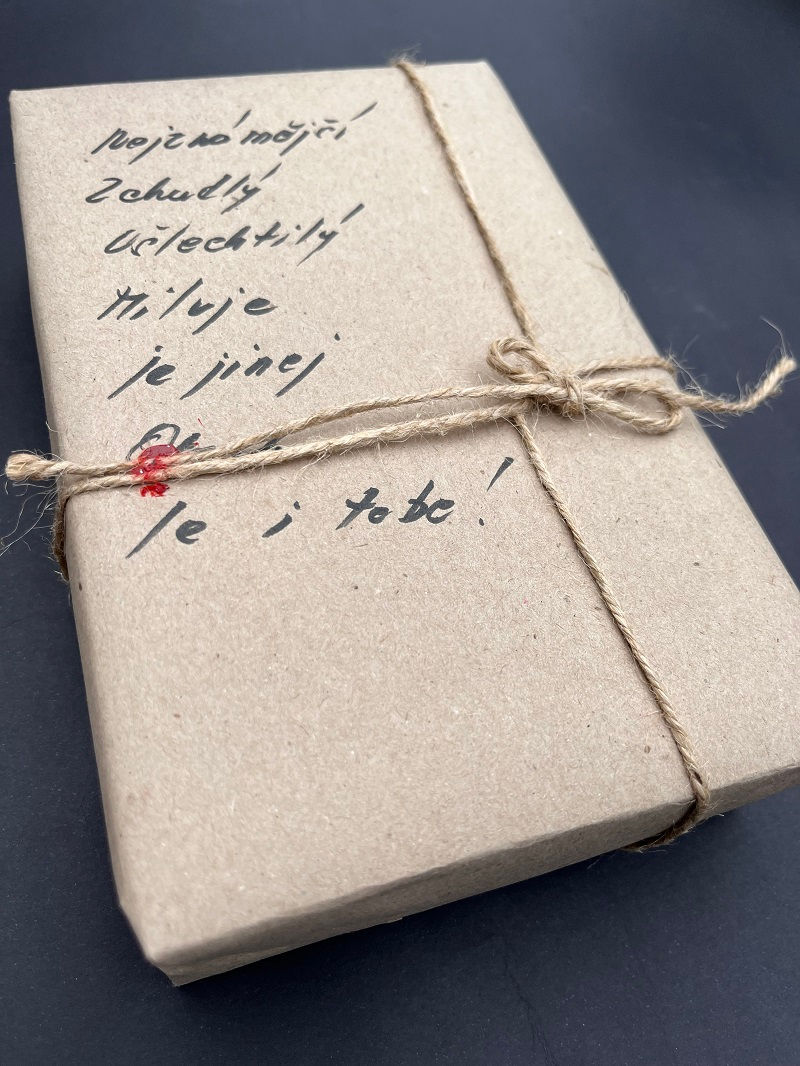 Nejznámějčí
Zchudlý
Ušlechtilý
Miluje
je jinej
Je i tobe!